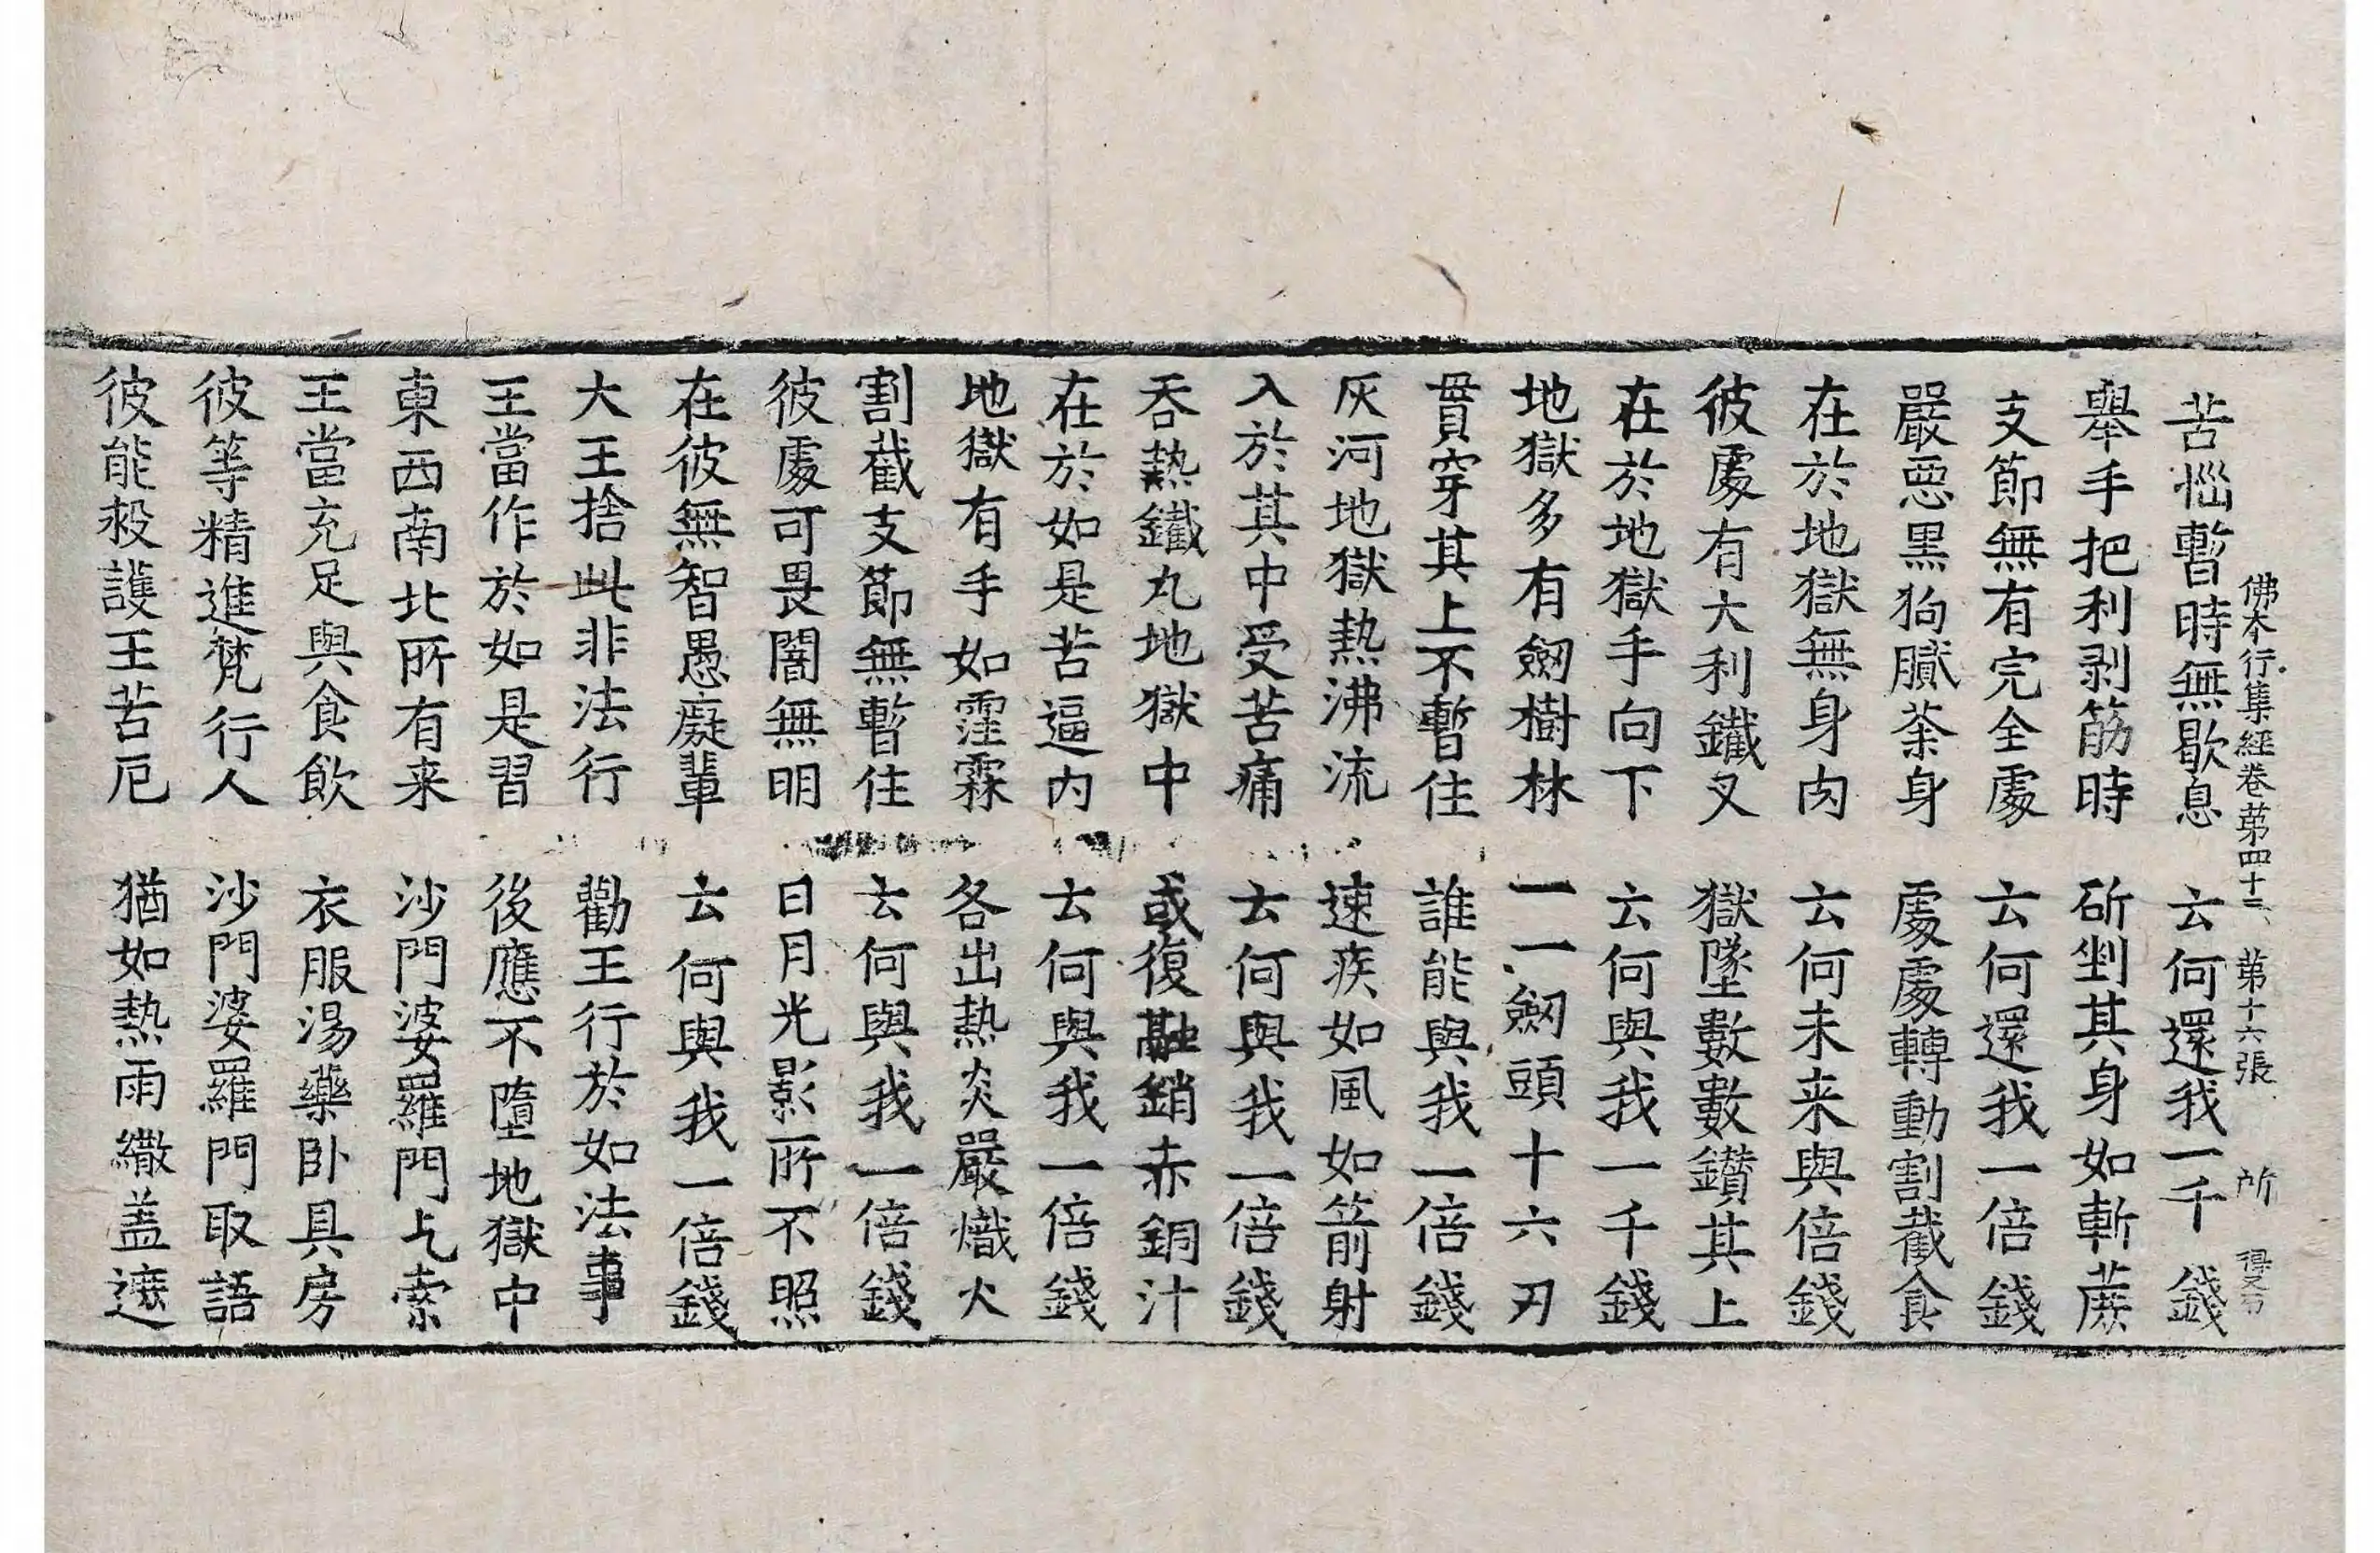 佛本行集經卷苐四十三 第十六張 所 得文
苦惱暫時無歇息 云何還我一千錢
舉手把利剥筋時 斫剉其身如斬蔗
支節無有完全處 云何還我一倍錢
嚴惡黒狗膩荼身 處處轉動割截食
在於地獄無身肉 云何未来與倍錢
彼處有大利鐵叉 獄墜數數鑽其上
在於地獄手向下 云何與我一千錢
地獄多有劒樹林 一一劒頭十六刃
貫穿其上不暫住 誰能與我一倍錢
灰河地獄熱沸流 速疾如風如箭射
入於其中受苦痛 云何與我一倍錢
吞熱鐵丸地獄中 或復融銷赤銅汁
在於如是苦逼内 云何與我一倍錢
地獄有手如霔霖 各出熱炎嚴熾火
割截支節無暫住 云何與我一倍錢
彼處可畏闇無明 日月光影所不照
在彼無智愚癡輩 云何與我一倍錢
大王捨此非法行 勸王行於如法事
王當作於如是習 後應不墮地獄中
東西南北所有来 沙門婆羅門乞索
王當充足與食飲 衣服湯藥卧具房
彼等精進梵行人 沙門婆羅門取語
彼能救護王苦厄 猶如熱雨繖盖遮